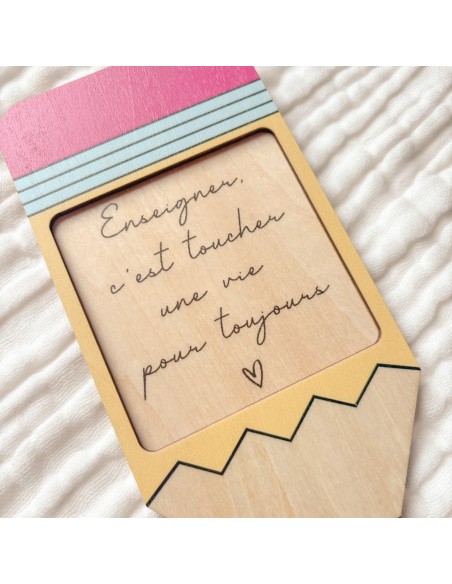 Enseigner,
c'est toucher
une vie
pour toujours